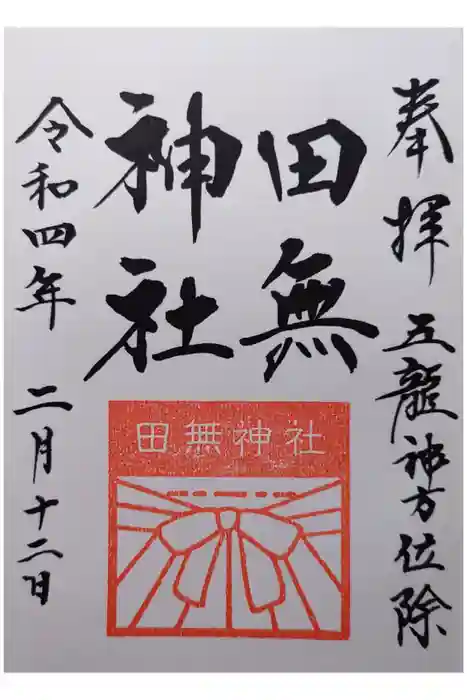 奉拝 五龍神方位除
田無
神社
田無神社
令和四年 二月十二日